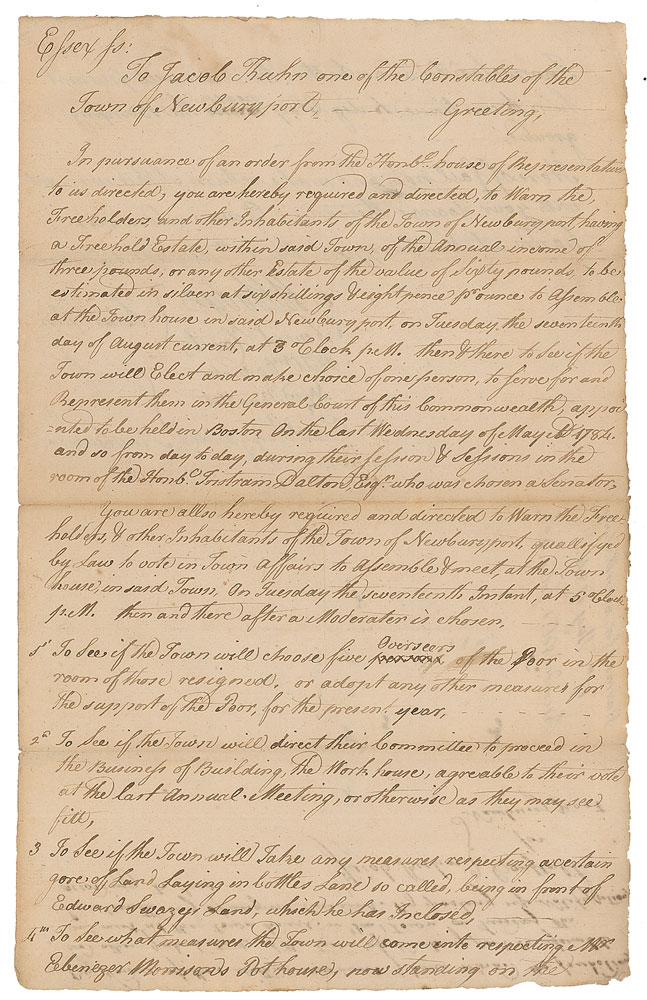 Essex ss:
To Jacob Thuhn one of the Constables of the
Town of Newburyport, Greeting,
In pursuance of an order from the Honble house of Representatives
to us directed, you are hereby required and directed, to Warn the,
Freeholders, and other Inhabitants of the Town of Newburyport, having
a Freehold Estate, within said Town, of the Annual income of
three pounds, or any other Estate of the value of sixty pounds, to be
estimated in silver at six shillings & eight pence pr ounce to Assemble
at the Town house in said Newburyport, on Tuesday the seventeenth
day of August current, at 3 oClock p.M. then & there to See if the
Town will Elect and make choice of one person, to serve for and
Represent them in the General Court of this Commonwealth, appoi
=nted to be held in Boston On the last Wednesday of May 1784.
and so from day to day, during their session & Sessions in the
room of the Honbe Tristram Dalton, Esqr. who was chosen a Senator,
You are allso hereby required and directed to Warn the Free-
holders, & other Inhabitants of the Town of Newburyport, quallifyed
by Law to vote in Town Affairs to Assemble & meet, at the Town
house, in said Town, On Tuesday the seventeenth Instant, at 5 oClock
p.M. then and there after a Moderater is chosen,
1st To See if the Town will choose five Overseors persons of the Poor in the
room of those resigned, or adopt any other measures for
the support of the Poor, for the present year,
2d To See if the Town will direct their Committee to proceed in
the Business of Building, the Work house, agreable to their vote
at the last Annual Meeting, or otherwise as they may see
fitt,
3 To See if the Town will Take any measures respecting a certain
gore of Land Laying in bottles Lane so called, being in front of
Edward Swazey Land, which he has Inclosed,
4th To See what measures the Town will come into respecting Mr
Ebenezer Morrisons Pot house, now standing on the